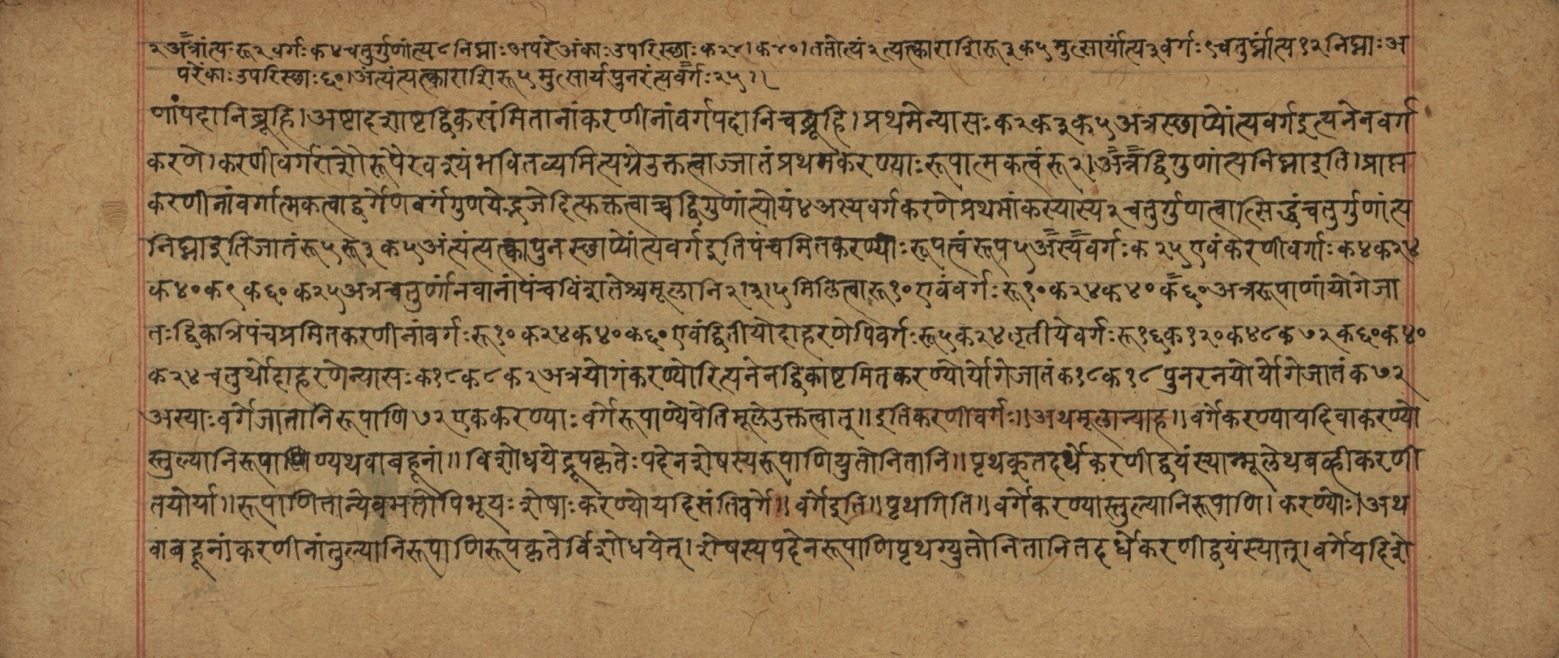 २अत्रांत्यःरू२वर्गःक४चतुर्गुणांत्य८निघ्नाःअपरेअंकाःउपरिस्छाःक२४।क४०।ततोत्यं२त्यत्काराशिरू३क५मुत्सार्यात्य३वर्गः९चतुर्घ्नांत्य१२निघ्नाःअ
परेंकाःउपरिस्छाः६०।अंत्यंत्यत्काराशिरू५मुत्सार्यपुनरंत्यवर्गः२५।।
णांपदानिब्रूहि।अष्टादशाष्टद्विकसंमितानांकरणीनांवर्गपदानिचब्रूहि।प्रथमेन्यासःक२क३क५अत्रस्छाप्योंत्यवर्गइत्यनेनवर्ग
करणे।करणीवर्गराशेरूपैरवश्यंभवितव्यमित्यग्रेउक्तत्वाज्जातंप्रथमकरण्याःरूपात्मकत्वंरू२।अत्रद्विगुणांत्यनिघ्नाइति।प्राप्त
करणीनांवर्गात्मकत्वाद्वर्गेणवर्गंगुणयेद्भजेदित्कक्तत्वाच्चद्विगुणांत्योयं४अस्यवर्गकरणेप्रथमांकस्यास्य२चतुर्गुणत्वात्सिद्धंचतुर्गुणांत्य
निघ्नाइतिजातंरू५रू३क५अंत्यंत्यत्कापुनस्छाप्योंत्यवर्गइतिपंचमितकरण्याःरूपत्वंरूप५अस्यवर्गःक२५एवंकरणीवर्गाःक४क२४
क४०क९क६०क२५अत्रचतुर्णांनवानांपंचविंशतेश्चमूलानि२।३।५मिलित्वारू१०एवंवर्गःरू१०क२४क४०क६०अत्ररूपाणांयोगेजा
तःद्विकत्रिपंचप्रमितकरणीनांवर्गःरू१०क२४क४०क६०एवंद्वितीयोदाहरणेपिवर्गःरू५क२४तृतीयेवर्गःरू१६क१२०क४८क७२क६०क४०
क२४चतुर्थोदाहरणेन्यासःक१८क८क२अत्रयोगंकरण्योरित्यनेनद्विकाष्टमितकरण्योर्योगेजातंक१८क१८पुनरनयोर्योगेजातंक७२
अस्याःवर्गेजातानिरूपाणि७२एककरण्याःवर्गेरूपाण्येवेतिमूलेउक्तत्वात्॥इतिकरणीवर्गः॥अथमूलान्याह॥वर्गेकरण्यायदिवाकरण्यो
स्तुल्यानिरूपाण्यथवाबहूनां॥विशोधयेद्रूपकृतेःपदेनशेषस्यरूपाणियुतोनितानि॥पृथक्तदर्धेकरणीद्वयंस्यान्मूलेथबव्हीकरणी
तयोर्या॥रूपाणितान्येवमतोपिभूयःशेषाःकरण्योयदिसंतिवर्गे॥वर्गेइति॥पृथगिति॥वर्गेकरण्यास्तुल्यानिरूपाणि।करण्योः।अथ
वाबहूनांकरणीनांतुल्यानिरूपाणिरूपकृतेर्विशोधयेत्।शेषस्यपदेनरूपाणिपृथग्युतोनितानितदर्धेकरणीद्वयंस्यात्।वर्गेयदिशे